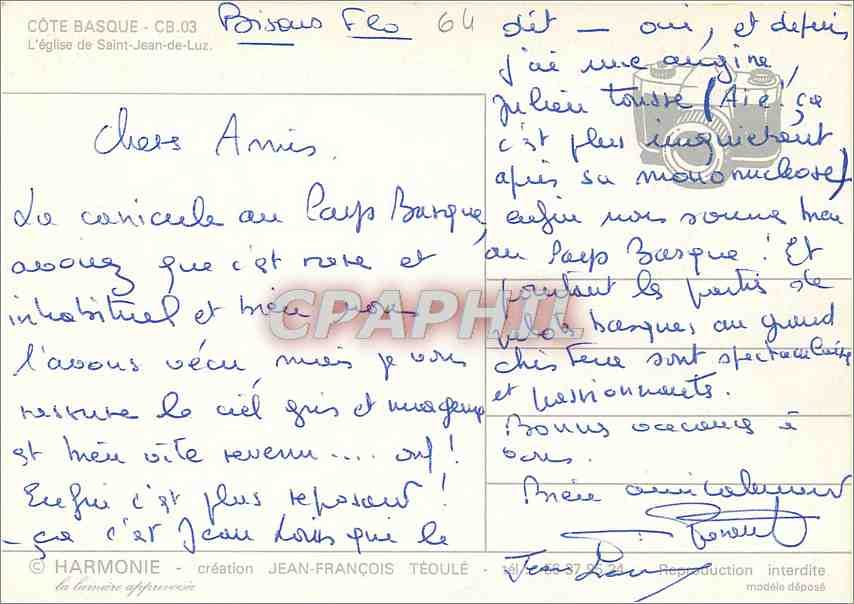 CÔTE BASQUE - CB.03
L'église de Saint-Jean-de-Luz.
Bisous Flo 64
Chers Amis.
La canicule au Pays Basque,
avouez que c'est rare et
inhabituel et bien nous
l'avons vécu, mais je vous
rassure le ciel gris et nuageux
est bien vite revenu .... ouf !
Enfin c'est plus reposant !
- ça c'est Jean Louis qui le
dit - oui, et depuis
j'ai une angine,
Julien tousse (Aïe ! ça
c'est plus inquiétant
après sa mononucléose)
enfin nous sommes bien
au Pays Basque ! Et
pourtant les parties de
pelote basques au grand
chistera sont spectaculaires
et passionnants.
Bonnes vacances à
vous.
Bien amicalement
Jean Louis
CPAPHIL
© HARMONIE - création JEAN-FRANÇOIS TÉOULÉ - Reproduction interdite
la lumière apprivoisée
modèle déposé